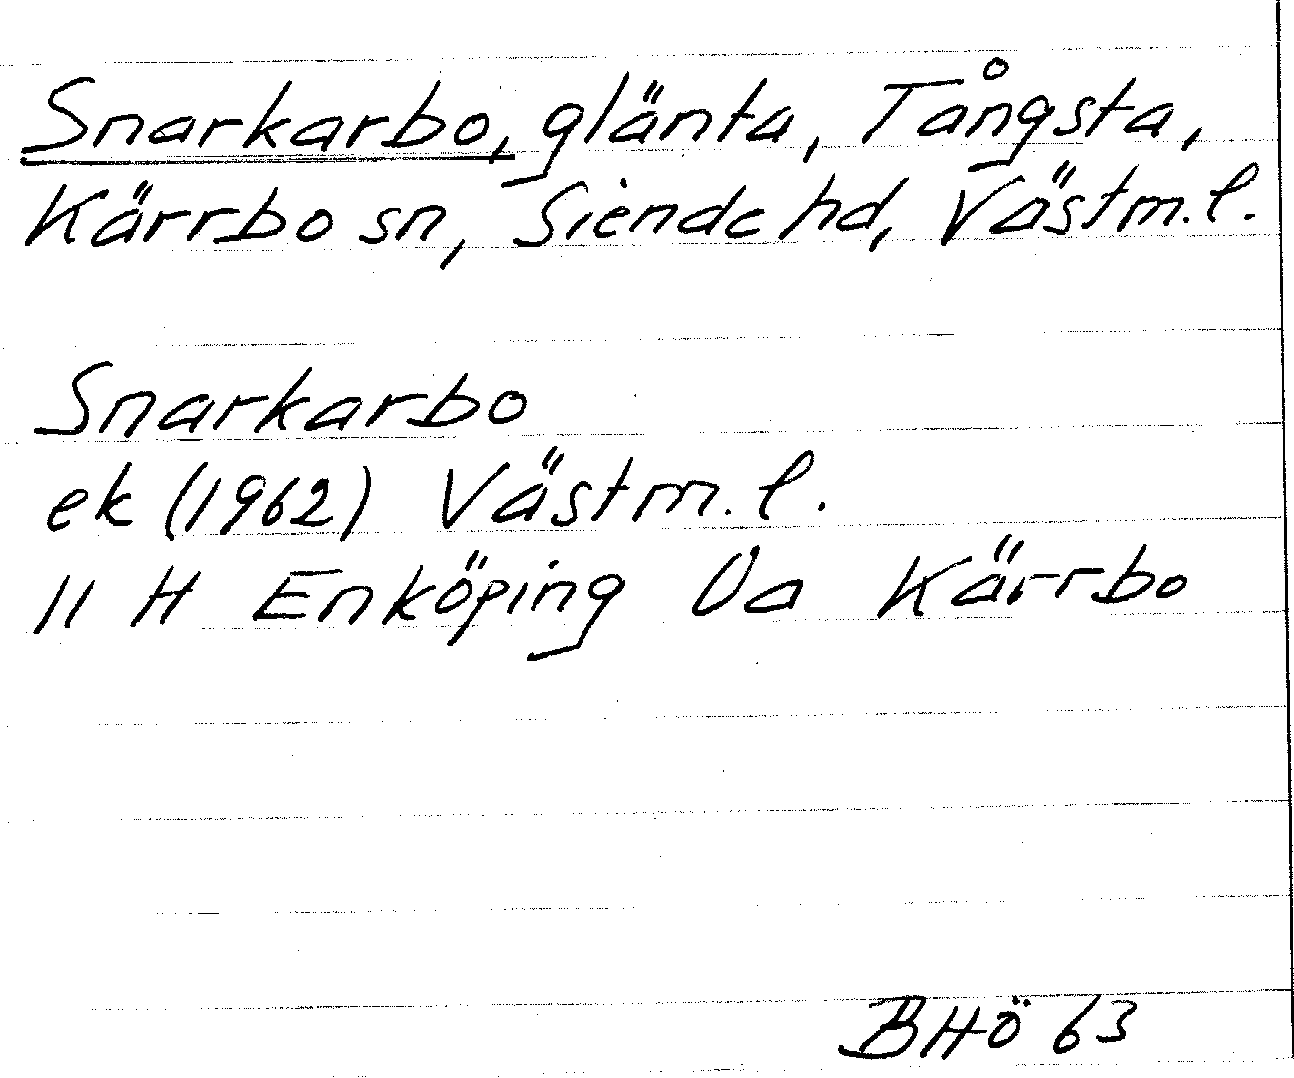 Snarkarbo, glänta, Tångsta,
Kärrbo sn, Siende hd, Västm. l.
Snarkarbo
ek (1962) Västm. l.
11 H Enköping Va Kärrbo
BHÖ 63